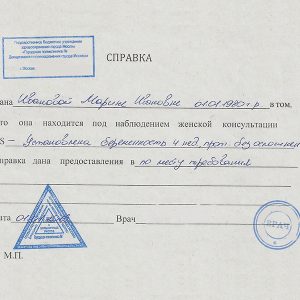 Государственное бюджетное учреждение
здравоохранения города Москвы
Департамента здравоохранения города Москвы
г. Москва
СПРАВКА
ана Ивановой Марине Ивановне 01.01.1980 г.р. в том,
то она находится под наблюдением женской консультации
S – Установлена беременность 4 нед.
правка дана предоставления в по месту требования
ата Врач
ВРАЧ
М.П.